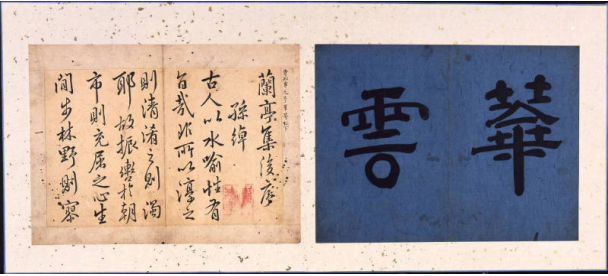 華
雲
蘭亭集後序
孫綽
古人以水喻性有
旨哉非所以渟之
則清淆之則濁
耶故振轡於朝
市則充屈之心生
閒步林野則寥